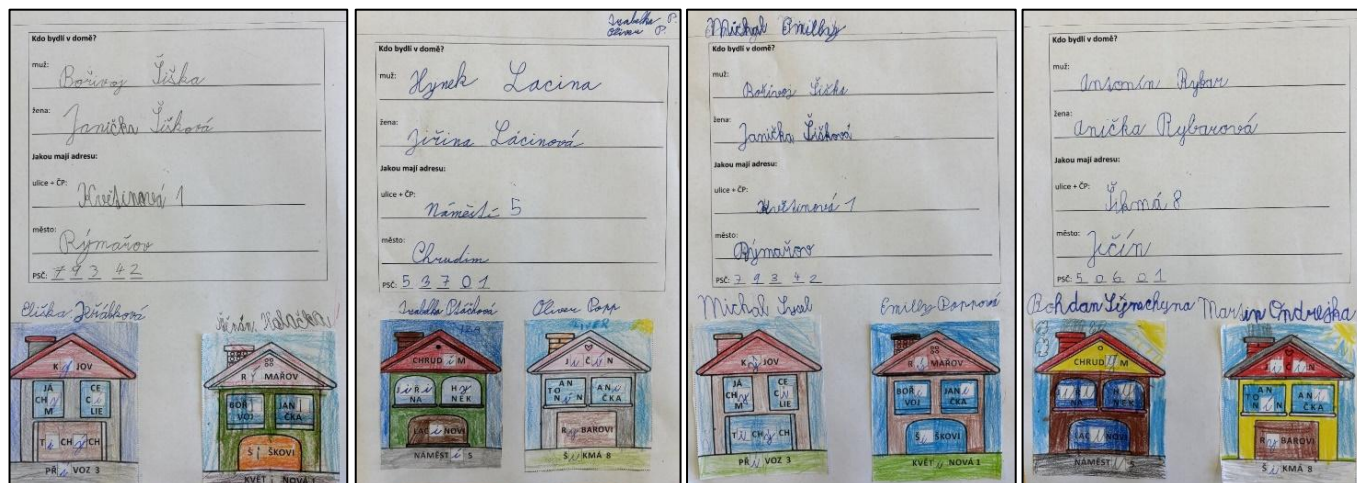 Kdo bydlí v domě?
muž:
Bořivoj Šiška
žena:
Janička Šišková
Jakou mají adresu:
ulice + ČP:
Květinová 1
město:
Rýmařov
PSČ: 7 9 3 4 2
Eliška Jeřábková
K y JOV
JÁ CH y M
CE C i LIE
T i CH ý CH
PŘ í VOZ 3
R ý MAŘOV
BOŘ i VOJ
JAN i ČKA
Š i ŠKOVI
KVĚT i NOVÁ 1
Izabelka P.
Oliver P.
Kdo bydlí v domě?
muž:
Hynek Lacina
žena:
Jiřina Lácinová
Jakou mají adresu:
ulice + ČP:
Náměstí 5
město:
Chrudim
PSČ: 5 3 7 0 1
Izabelka Ptáčková
Oliver Popp
CHRUD i M
J i Ř i NA
H y NEK
LAC i NOVI
NÁMĚST í 5
J i Č í N
AN TON í N
AN i ČKA
R y BAROVI
Š i KMÁ 8
Michal Emilly
Kdo bydlí v domě?
muž:
Bořivoj Šiška
žena:
Janička Šišková
Jakou mají adresu:
ulice + ČP:
Květinová 1
město:
Rýmařov
PSČ: 7 9 3 4 2
Michal
Emilly Poppová
K y JOV
JÁ CH y M
CE C i LIE
T i CH ý CH
PŘ í VOZ 3
R ý MAŘOV
BOŘ i VOJ
JAN i ČKA
Š i ŠKOVI
KVĚT i NOVÁ 1
Kdo bydlí v domě?
muž:
Antonín Rybar
žena:
Anička Rybarová
Jakou mají adresu:
ulice + ČP:
Šikmá 8
město:
Jičín
PSČ: 5 0 6 0 1
Bohdan
Martin Ondrejka
CHRUD i M
J i Ř i NA
H y NEK
LAC i NOVI
NÁMĚST í 5
J i Č í N
AN TON í N
AN i ČKA
R y BAROVI
Š i KMÁ 8